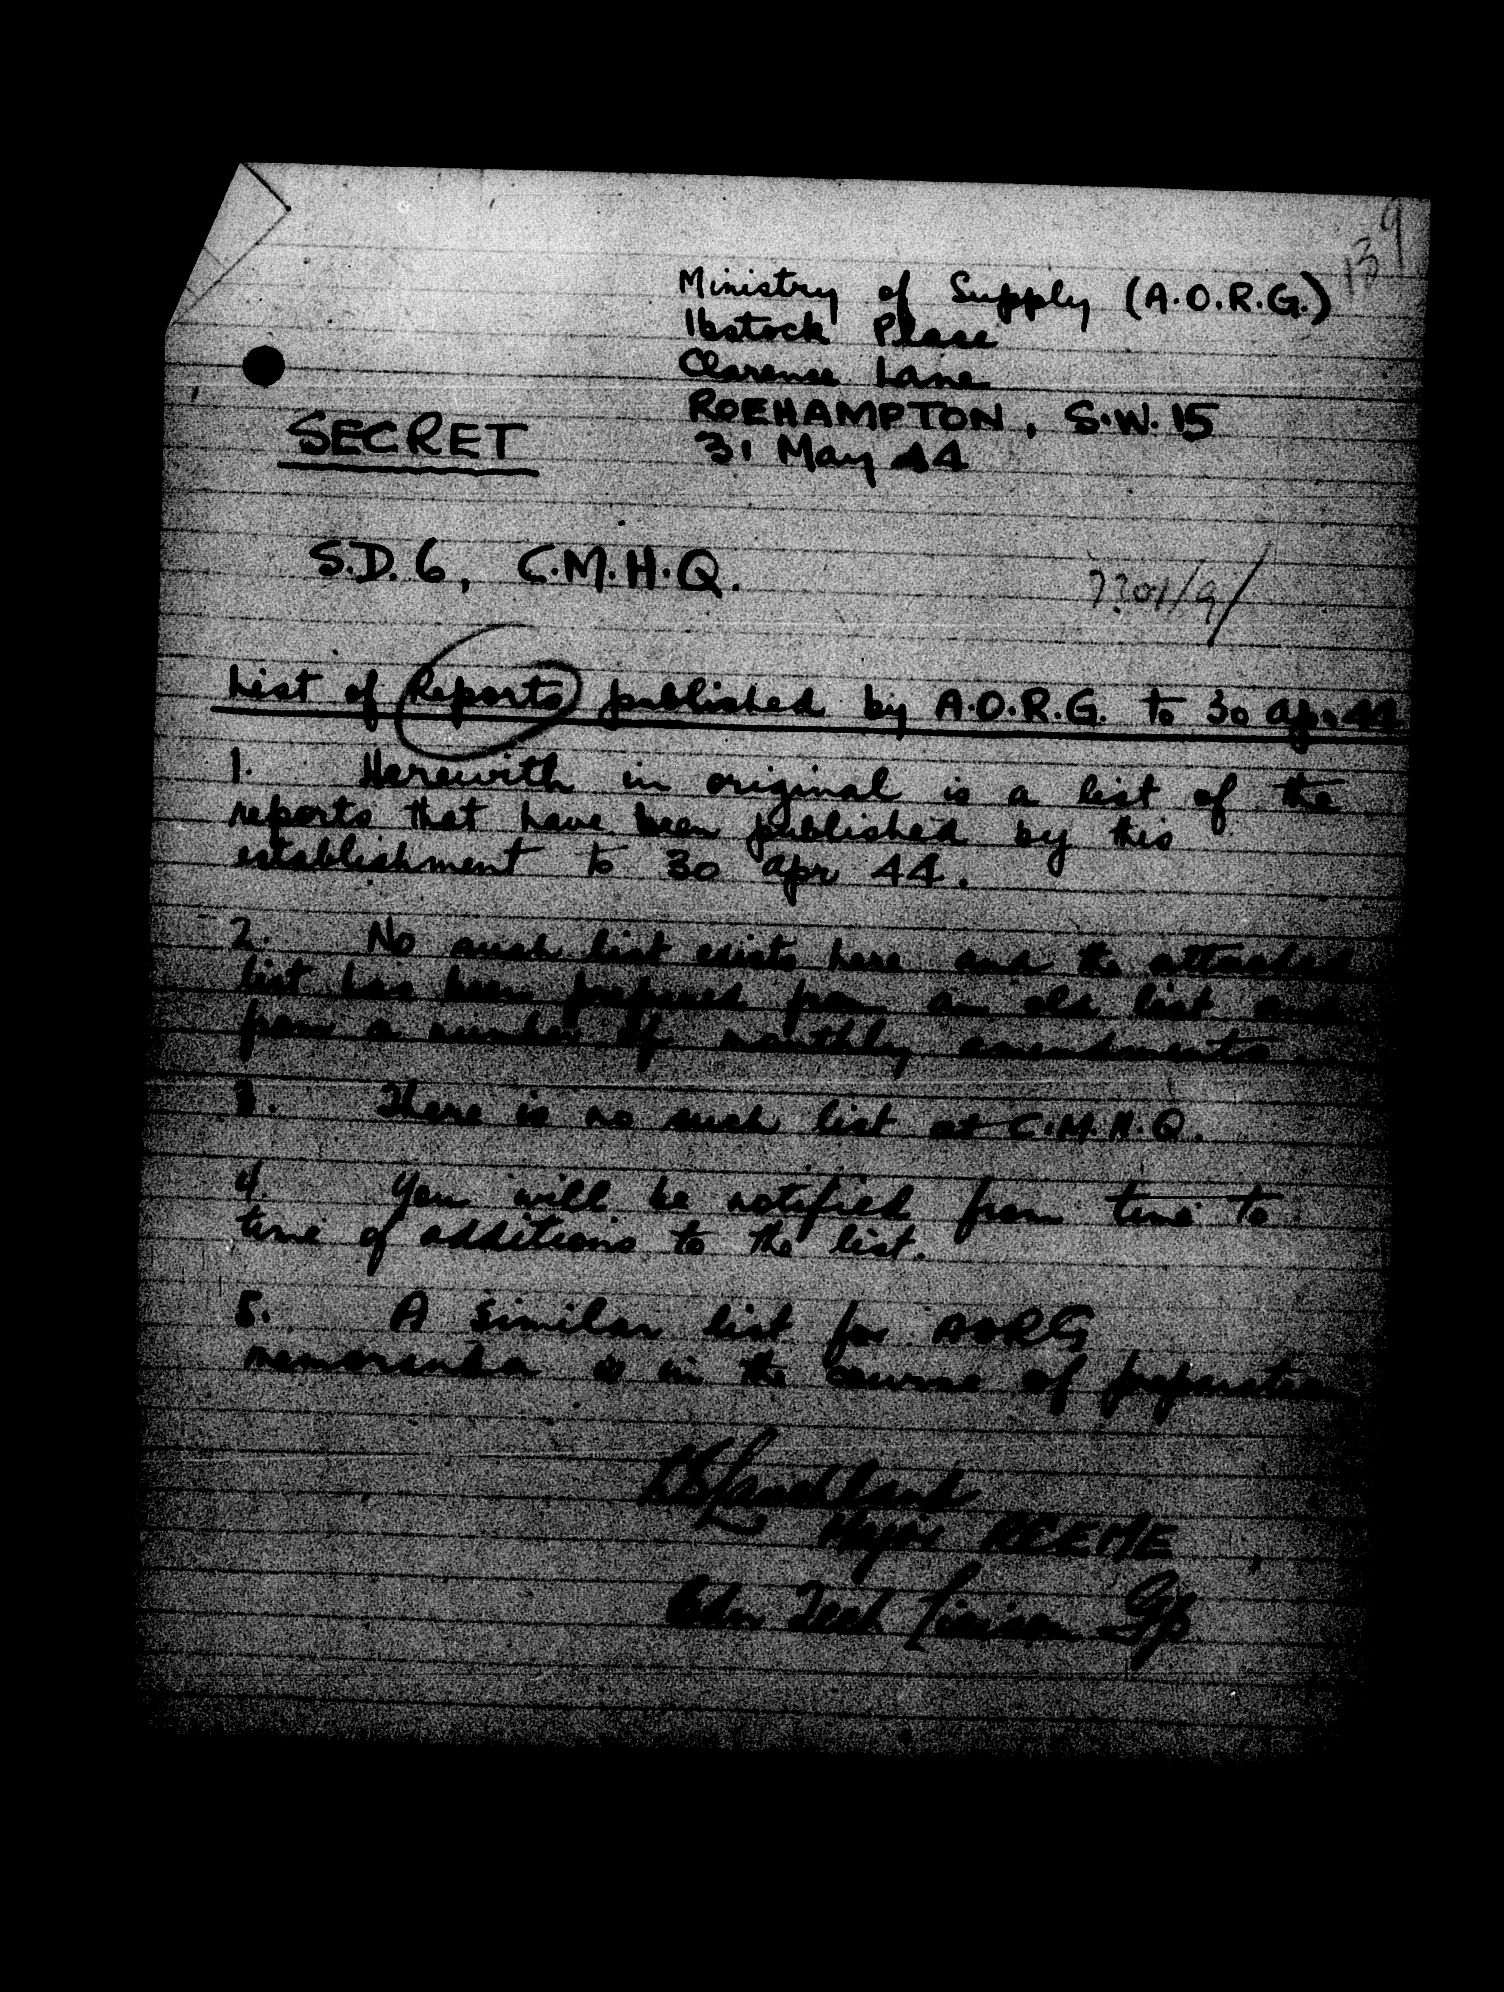 139
Ministry of Supply (A.O.R.G.)
Ibstock Place
Clarence Lane
ROEHAMPTON, S.W. 15
SECRET
31 May 44
S.D. 6, C.M.H.Q.
List of Reports published by A.O.R.G. to 30 Apr 44
1. Herewith in original is a list of the
reports that have been published by this
establishment to 30 Apr 44.
2. No such list exists here and the attached
list has been prepared from an old list and
from a number of monthly amendments.
3. There is no such list at C.M.H.Q.
4. You will be notified from time to
time of additions to the list.
5. A similar list for AORG
memoranda is in the course of preparation
Major RCEME
Cdn Tech Liaison Gp